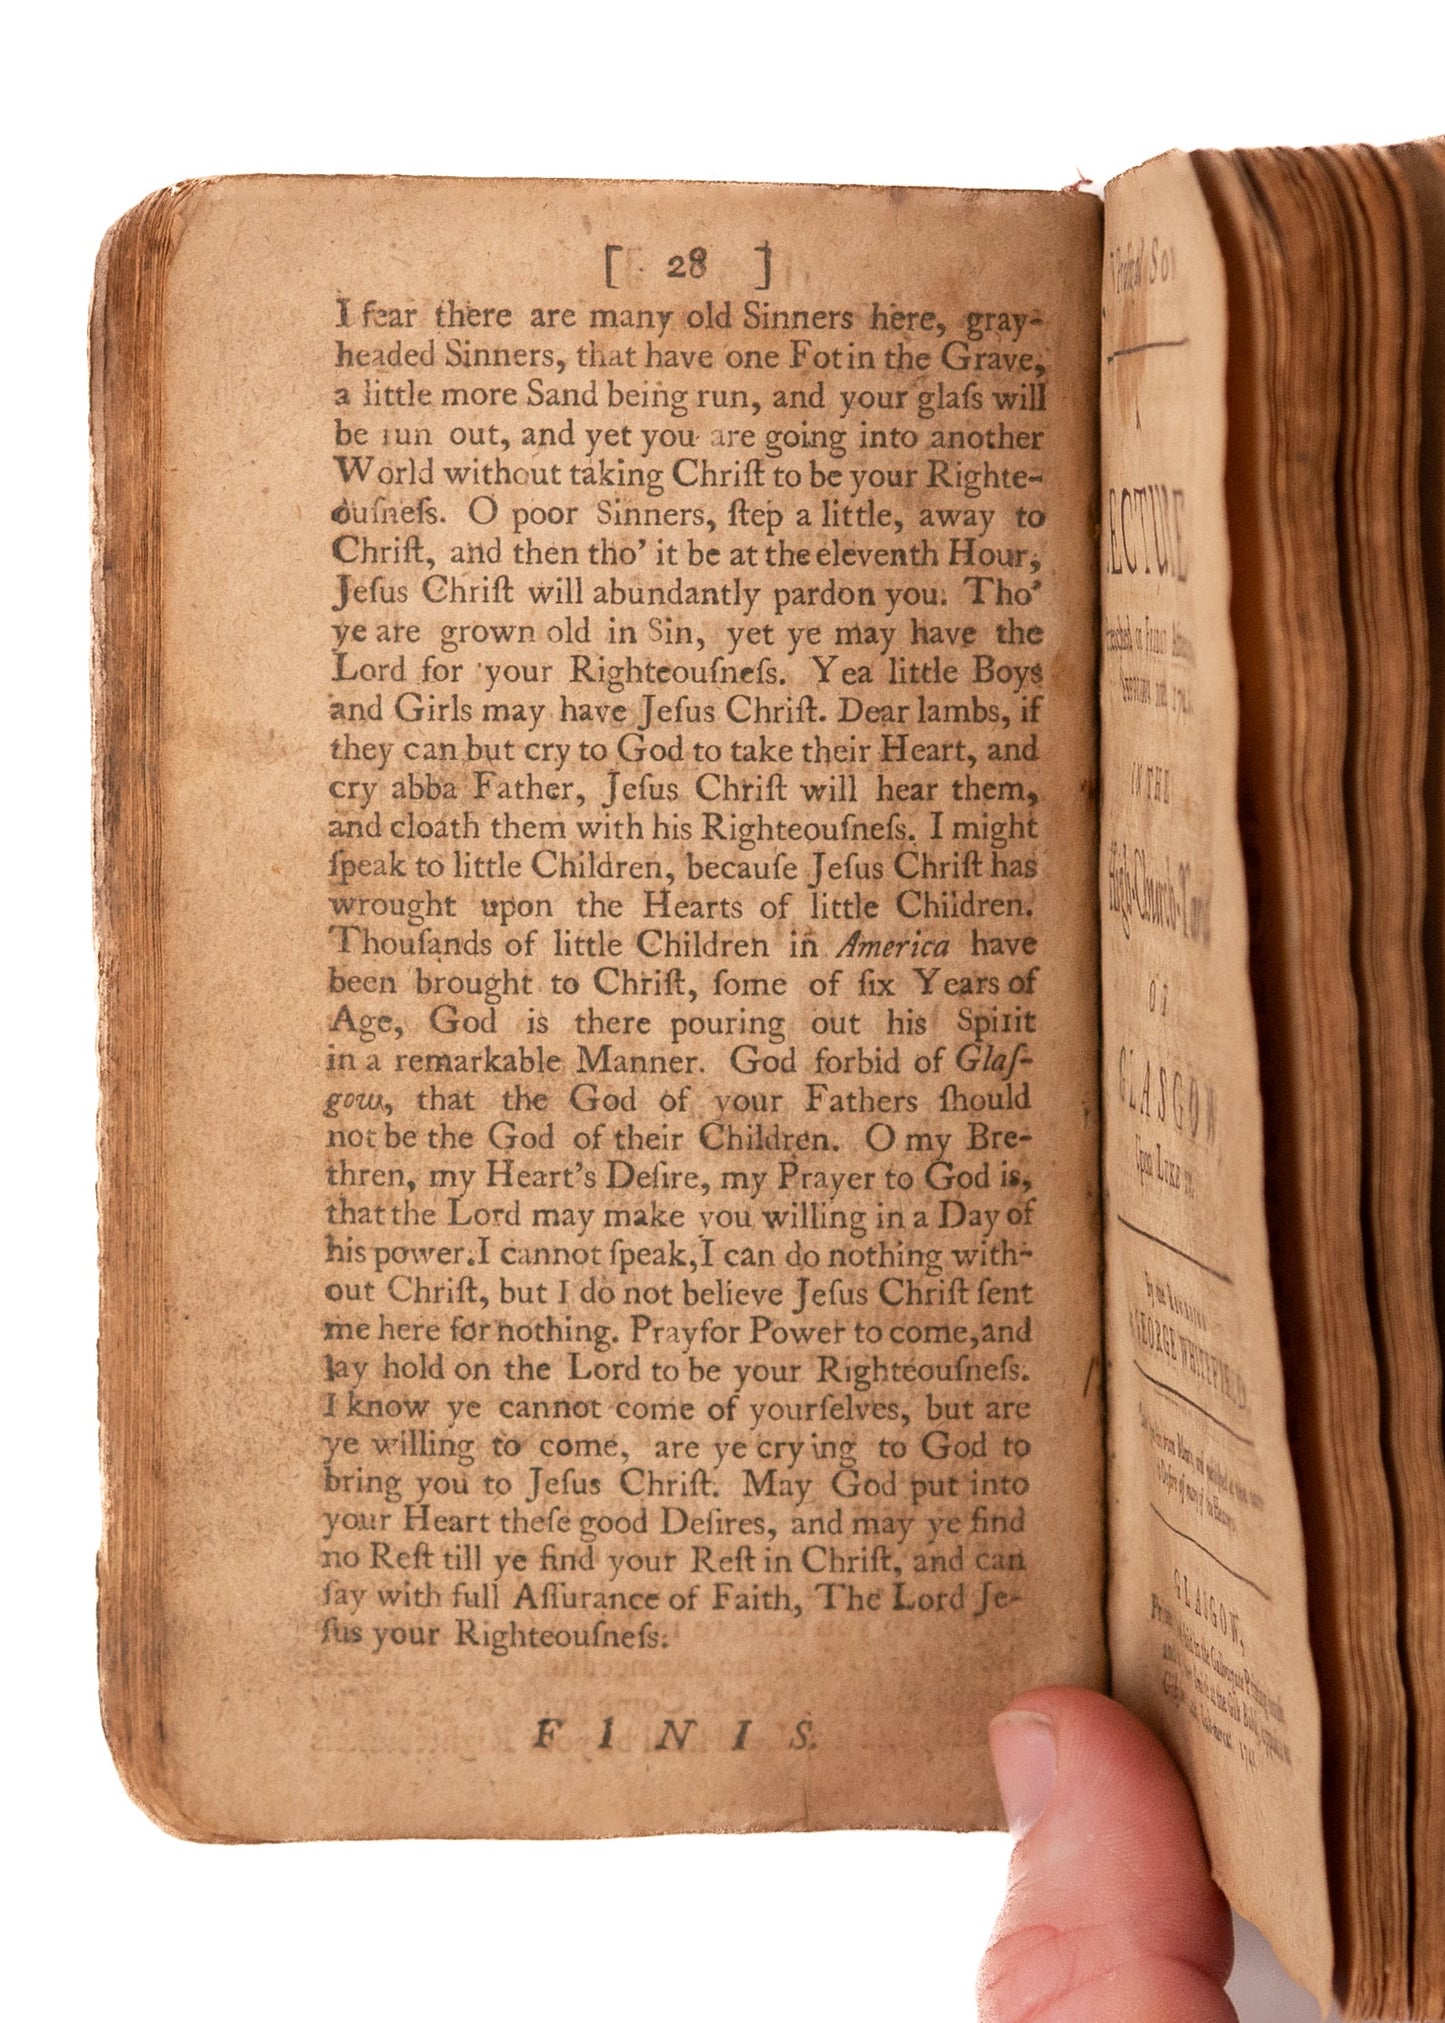 [ 28 ]
I fear there are many old Sinners here, gray-
headed Sinners, that have one Fot in the Grave,
a little more Sand being run, and your glaſs will
be run out, and yet you are going into another
World without taking Chriſt to be your Righte-
ouſneſs. O poor Sinners, ſtep a little, away to
Chriſt, and then tho' it be at the eleventh Hour,
Jeſus Chriſt will abundantly pardon you. Tho'
ye are grown old in Sin, yet ye may have the
Lord for your Righteouſneſs. Yea little Boys
and Girls may have Jeſus Chriſt. Dear lambs, if
they can but cry to God to take their Heart, and
cry abba Father, Jeſus Chriſt will hear them,
and cloath them with his Righteouſneſs. I might
ſpeak to little Children, becauſe Jeſus Chriſt has
wrought upon the Hearts of little Children.
Thouſands of little Children in America have
been brought to Chriſt, ſome of ſix Years of
Age, God is there pouring out his Spirit
in a remarkable Manner. God forbid of Glaſ-
gow, that the God of your Fathers ſhould
not be the God of their Children. O my Bre-
thren, my Heart's Deſire, my Prayer to God is,
that the Lord may make you willing in a Day of
his power. I cannot ſpeak, I can do nothing with-
out Chriſt, but I do not believe Jeſus Chriſt ſent
me here for nothing. Pray for Power to come, and
lay hold on the Lord to be your Righteouſneſs.
I know ye cannot come of yourſelves, but are
ye willing to come, are ye crying to God to
bring you to Jeſus Chriſt. May God put into
your Heart theſe good Deſires, and may ye find
no Reſt till ye find your Reſt in Chriſt, and can
ſay with full Aſſurance of Faith, The Lord Je-
ſus your Righteouſneſs.
F I N I S.
A
LECTURE
IN THE
High-Church-
OF
GLASGOW
Upon LUKE
By the REVEREND
GEORGE WHITEFIELD
GLASGOW,